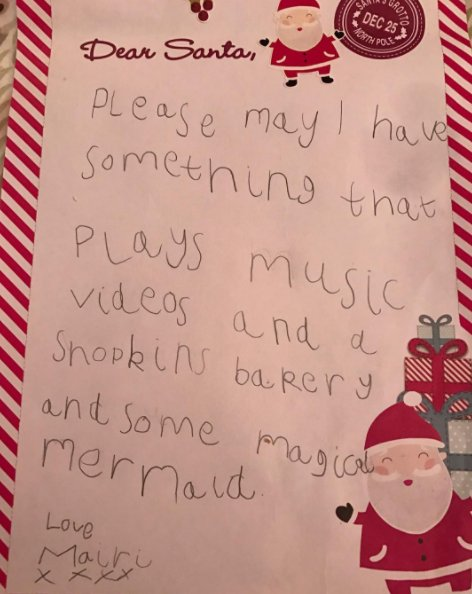 SANTA'S GROTTO
DEC 25
NORTH POLE
Dear Santa,
Please may I have
something that
Plays music
videos and a
Shopkins bakery
and some magical
mermaid.
Love
Mairi
x x xx